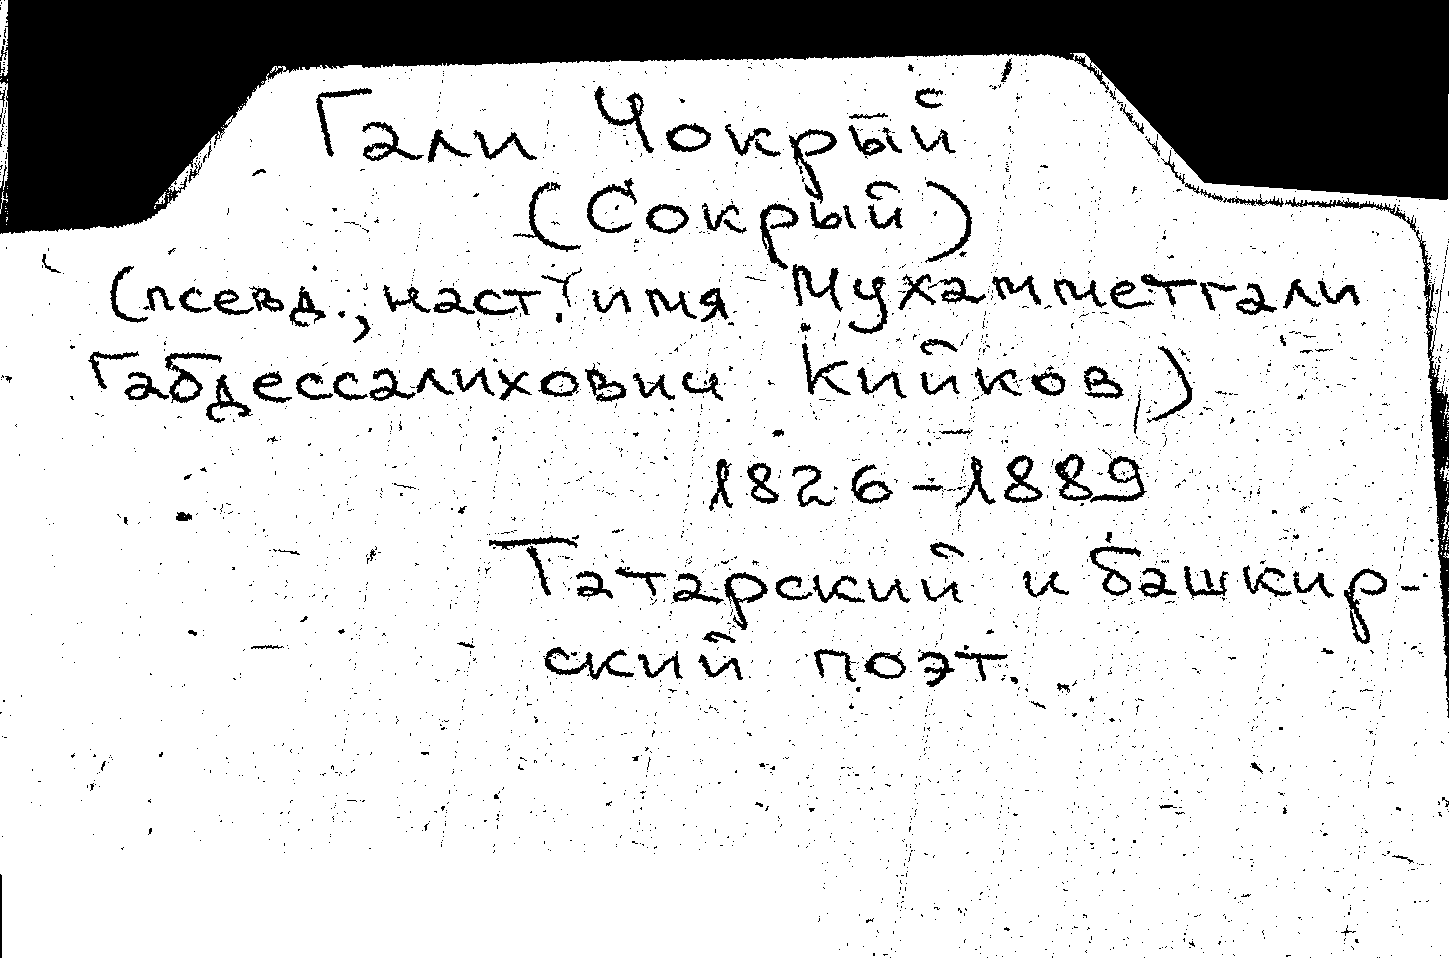 Гали Чокрый
(Сокрый)
(псевд., наст. имя Мухамметгали
Габдессалихович Кийков)
1826-1889
Татарский и башкир-
ский поэт.